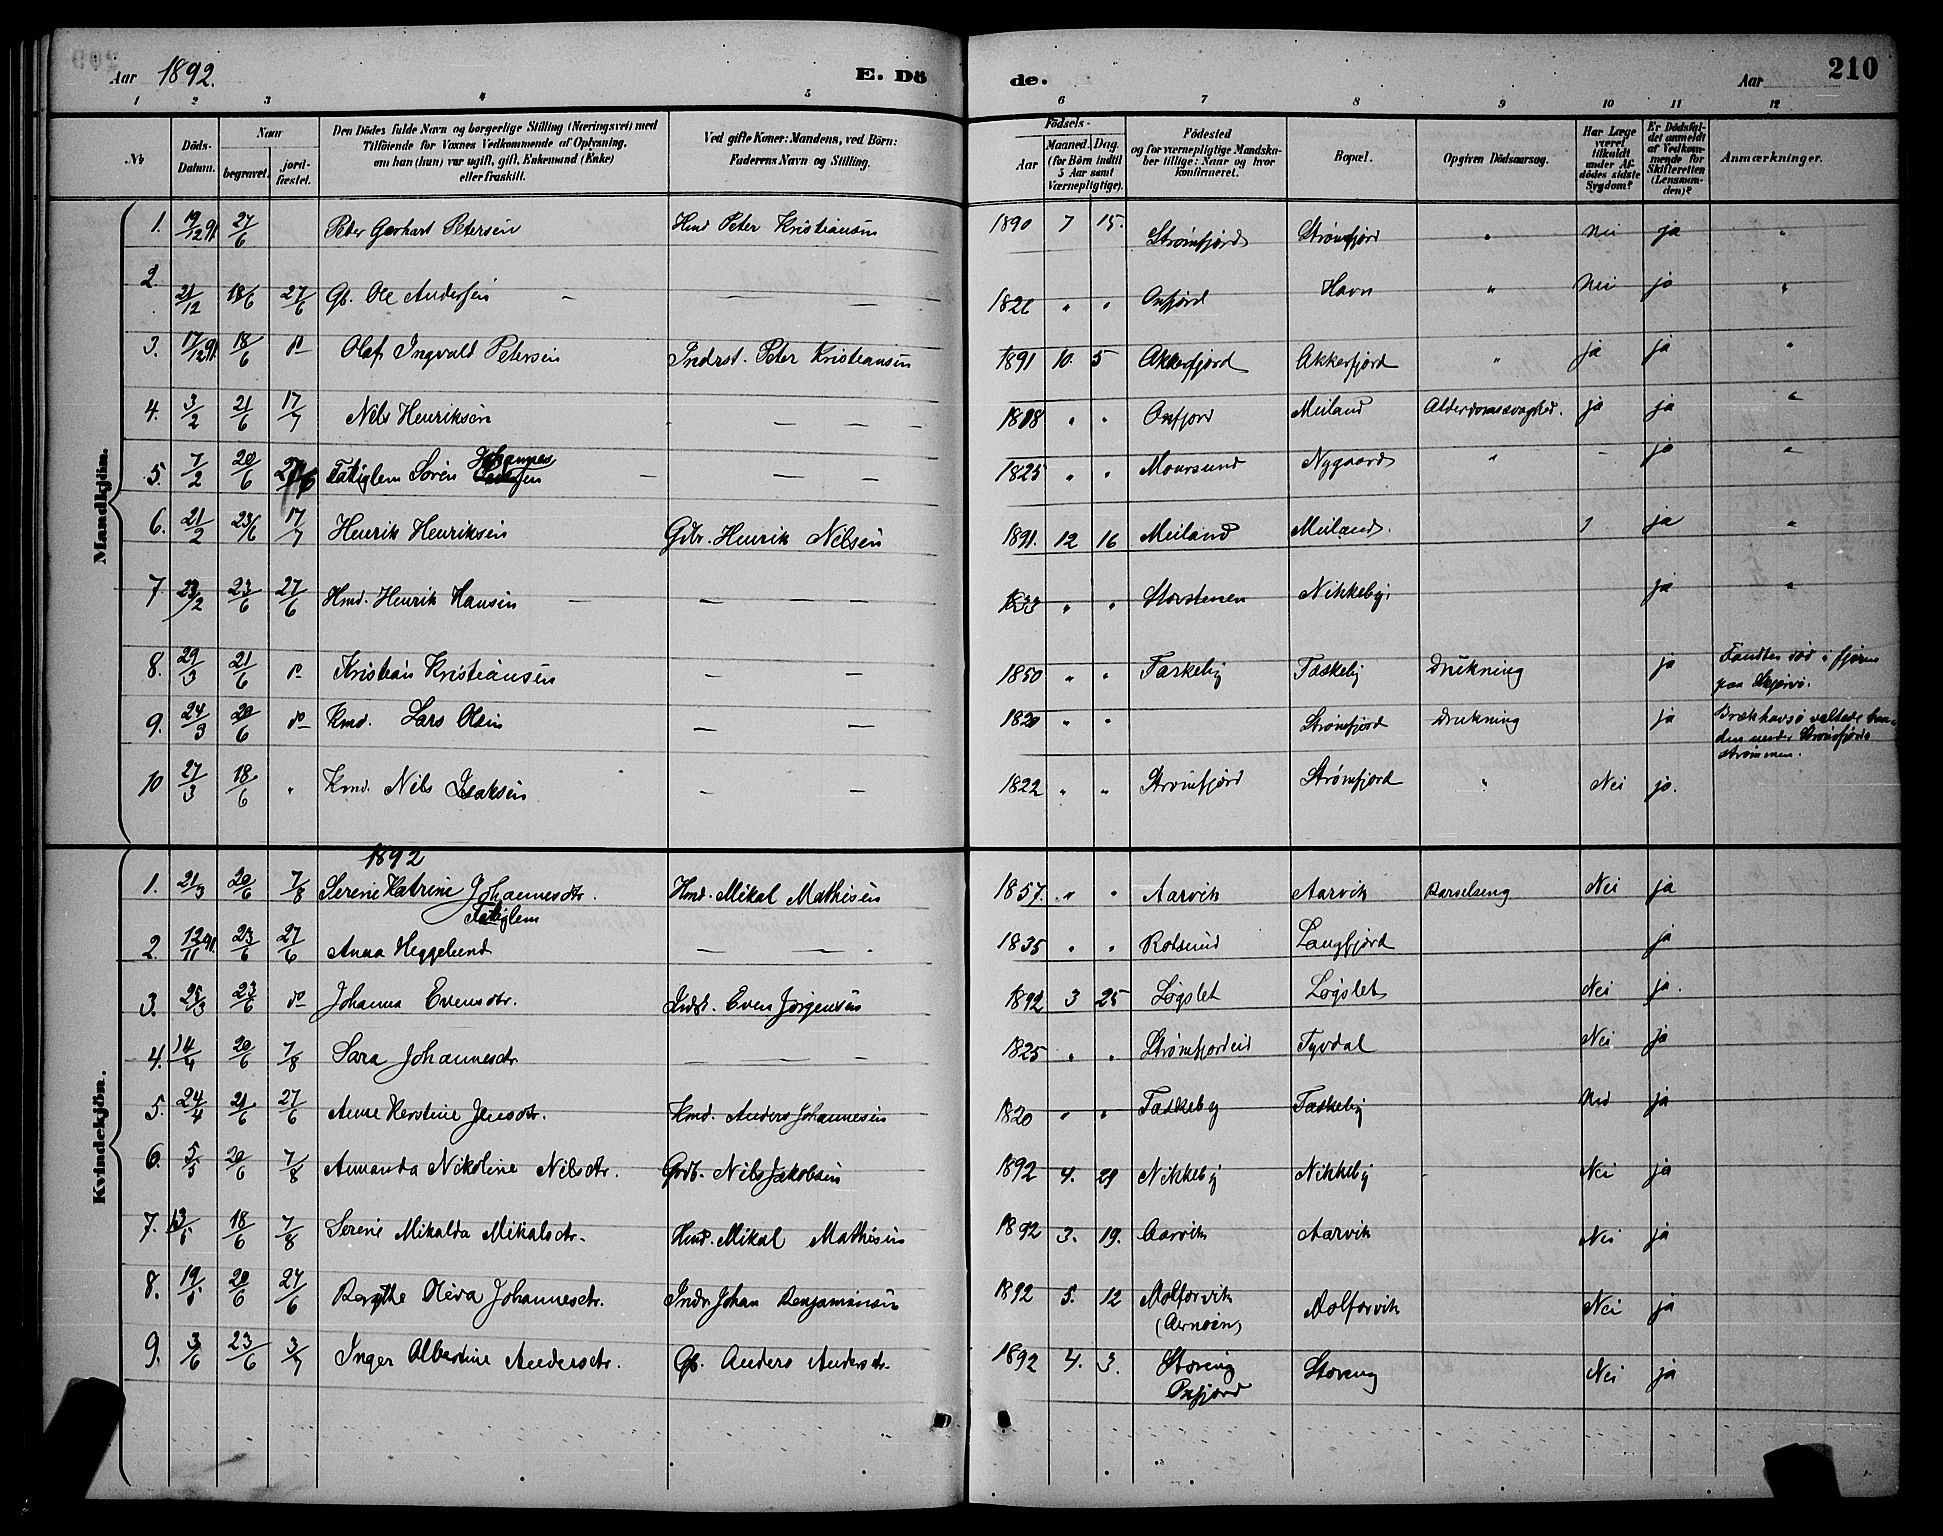 Aar 1892. E. Dö de. Aar 210
1 2 3 4 5 6 7 8 9 10 11 12
No
Döds-
Datum.
Naar
begravet.
jord-
fæstet.
Den Dödes fulde Navn og borgerlige Stilling (Næringsvei) med
Tilföiende for Voxnes Vedkommende af Oplysning,
om han (hun) var ugift, gift, Enkemand (Enke)
eller fraskilt.
Ved gifte Koner: Mandens, ved Börn:
Faderens Navn og Stilling.
Födsels-
Aar
Maaned. Dag.
(for Börn indtil
5 Aar samt
Værnepligtige).
Födested
og for værnepligtige Mandska-
ber tillige: Naar og hvor
konfirmeret.
Bopæl.
Opgiven Dödsaarsag.
Har Læge
været
tilkaldt
under Af-
dödes sidste
Sygdom?
Er Dödsfal-
det anmeldt
af Vedkom-
mende for
Skifteretten
(Lensman-
den)?
Anmærkninger.
Mandkjön.
1. 19/12 91 27/6 Peter Gerhart Petersen Hmd Peter Kristiansen 1890 7 15. Strømfjord Strømfjord " Nei ja "
2. 21/12 18/6 27/6 Gb. Ole Andersen — — — 1826 " " Oxfjord Havn " Nei ja "
3. 17/12 91 18/6 do Olaf Ingvald Petersen Indrst. Peter Kristiansen 1891 10. 5 Akkerfjord Akkerfjord " ja ja "
4. 3/2 21/6 17/7 Nils Henriksen — — — 1818 " " Oxfjord Meiland Alderdomssvaghed. ja ja "
5. 7/2 20/6 Fatiglem Søren Johannes — — — 1825 " " Maursund Nygaard " - ja "
6. 21/2 23/6 17/7 Henrik Henriksen Gbr. Henrik Nilsen 1891. 12 16 Meiland Meiland. ja "
7 23/2 23/6 27/6 Hmd. Henrik Hansen — — — 1833 " " Storstenen Nikkeby. ja "
8. 29/3 21/6 do Kristian Kristiansen — — 1850 " " Taskeby Taskeby Drukning ja Fandtes død i fjæren
paa Skjervø.
9. 24/3 20/6 do Kmd. Lars Olsen — — 1820 " " Strømfjord Drukning ja
10 27/3 18/6 " Kmd. Nils Isaksen — — 1822 " " Strømfjord Strømfjord " Nei ja.
Kvindekjön.
1892
1. 21/3 20/6 7/8 Serene Katrine Johannesdtr. Hmd. Mikal Mathisen 1857. " " Aarvik Aarvik Barselseng Nei ja
Fatiglem
2. 12/11 91. 23/6 27/6 Anna Heggelund — — — 1835 " " Rotsund Langfjord ja
3. 28/3 23/6 do Johanna Evensdtr. Indst. Even Jørgensen 1892 3 25 Løgslet Løgslet Nei ja.
4. 14/4 20/6 7/8 Sara Johannesdtr — — — 1825 " " Strømfjordeid Tyvdal Nei ja
5. 24/4 21/6 27/6 Anne Kerstine Jensdtr. Kmd. Anders Johannesen 1820 " " Taskeby Taskeby Nei ja
6. 5/5 20/6 7/8 Amanda Nikoline Nilsdtr. Grdb. Nils Jakobsen 1892 4. 29 Nikkeby Nikkeby - Nei ja
7. 13/5 18/6 7/8 Serene Mikalda Mikalsdtr. Hmd. Mikal Mathisen 1892 3. 19. Aarvik Aarvik Nei ja
8. 19/5 20/6 27/6 Berthe Oleva Johannesdtr. Indr. Johan Benjaminsen 1892 5. 12 Molforvik
(Arnøen) Molforvik Nei ja
9. 3/6 23/6 3/7 Inger Albertine Andersdtr. Gb. Anders Andersdtr. 1892 4. 3. Storeng
Oxfjord Storeng Nei ja